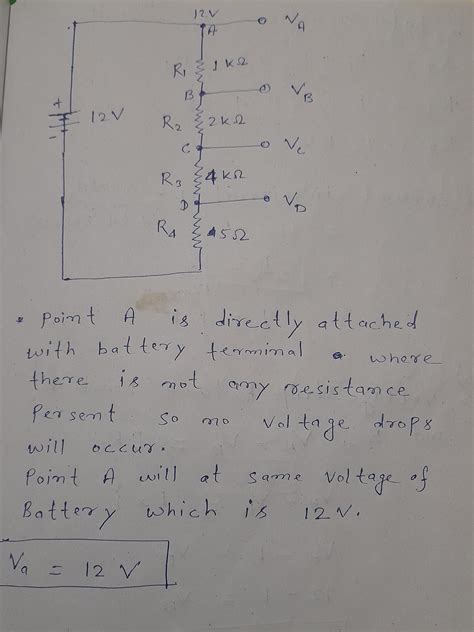 12V
A
V_A
R₁ 1 kΩ
B
V_B
+
12V
-
R₂ 2 kΩ
C
V_C
R₃ 4 kΩ
D
V_D
R₄ 5Ω
• Point A is directly attached
with battery terminal where
there is not any resistance
Persent so no voltage drops
will occur.
Point A will at same voltage of
Battery which is 12 V.
V_a = 12 V